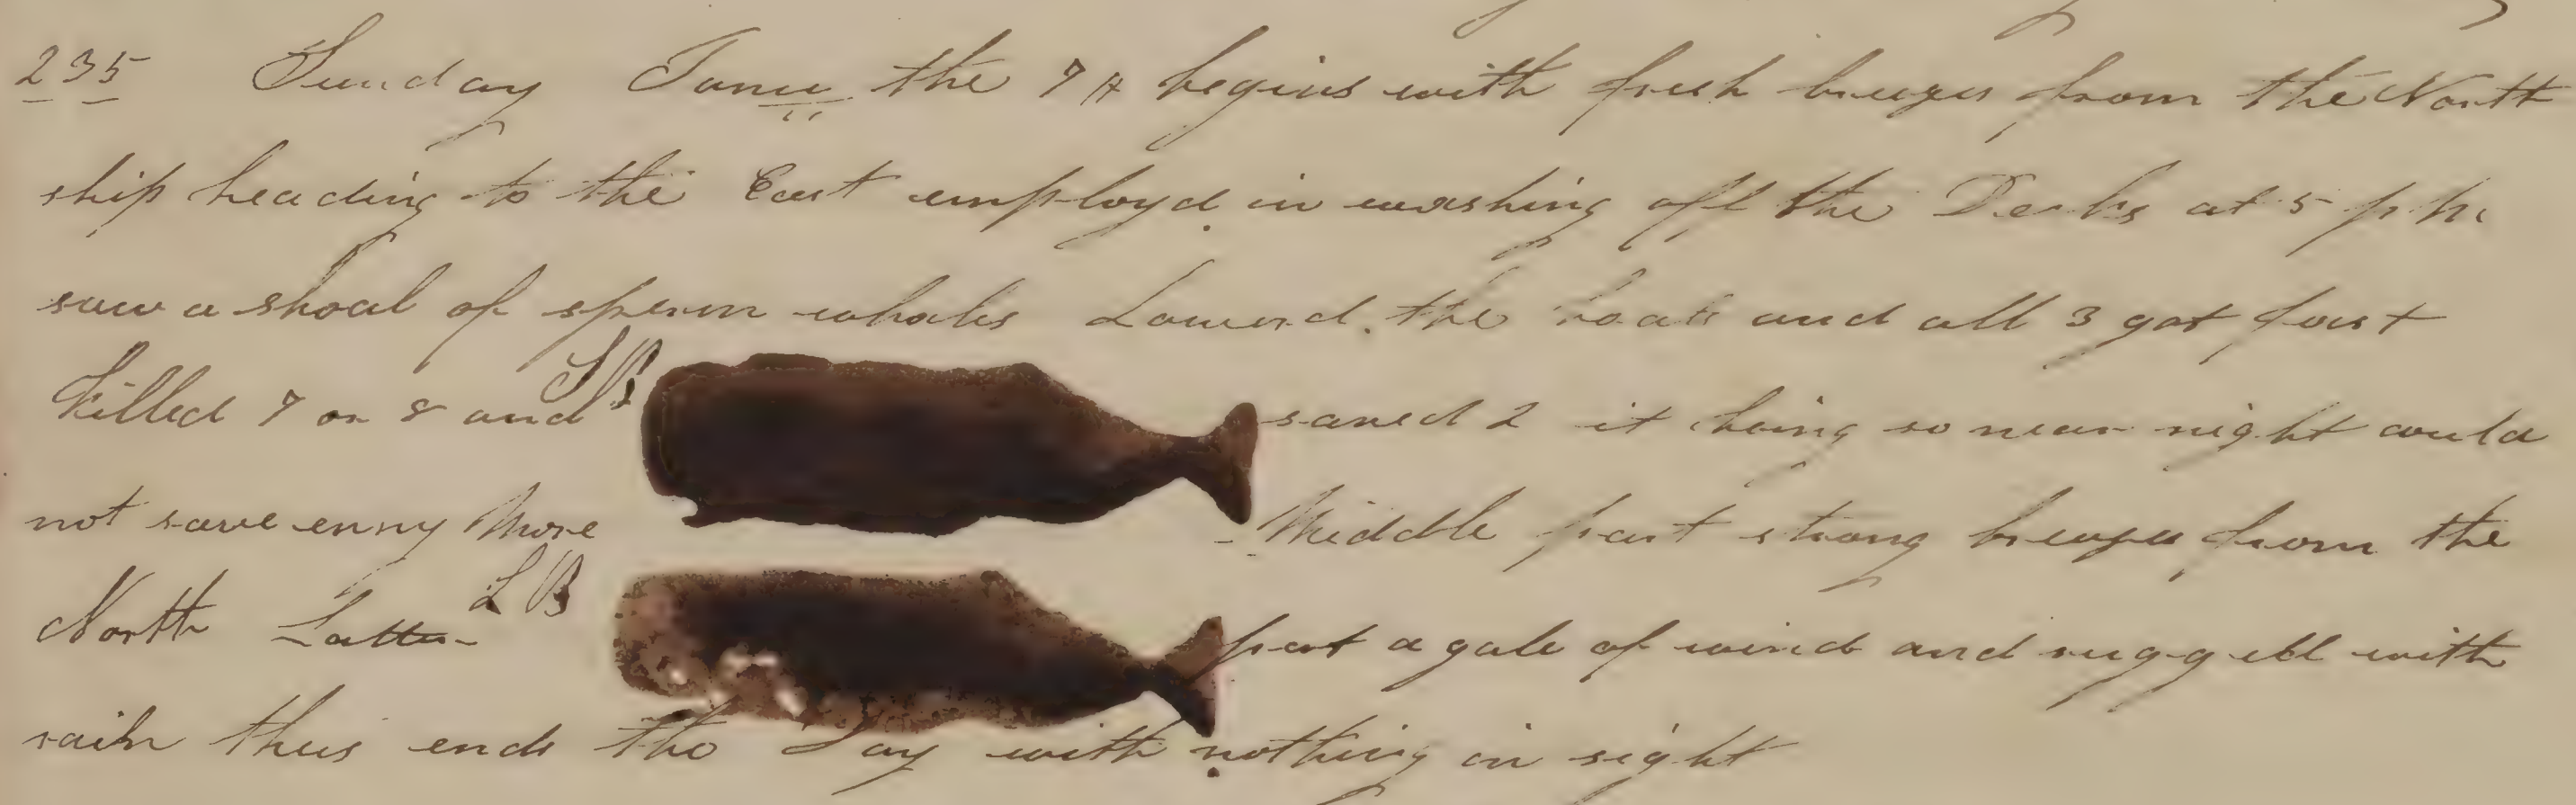 235 Sunday Janu the 7th begins with fresh breezes from the North
ship heading to the East employd in washing off the Decks at 5 p m
saw a shoal of sperm whales Lowerd the boats and all 3 got fast
killed 7 or 8 and SB saved 2 it being so near night could
not save enny More Middle part strong breezes from the
North Latter LB part a gale of wind and rugged with
rain thus ends the Day with nothing in sight